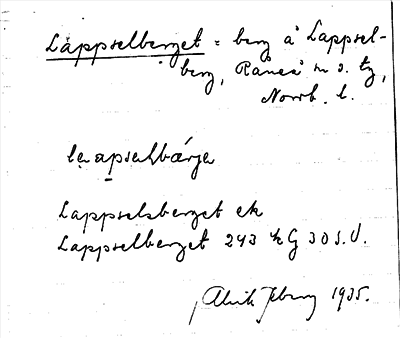 Lappselberget = berg å Lappsel-
berg, Råneå sn o. tg,
Norrb. l.
la apselbærje
Lappselsberget ek
Lappselberget 243 kG 30 S.V.
1935.